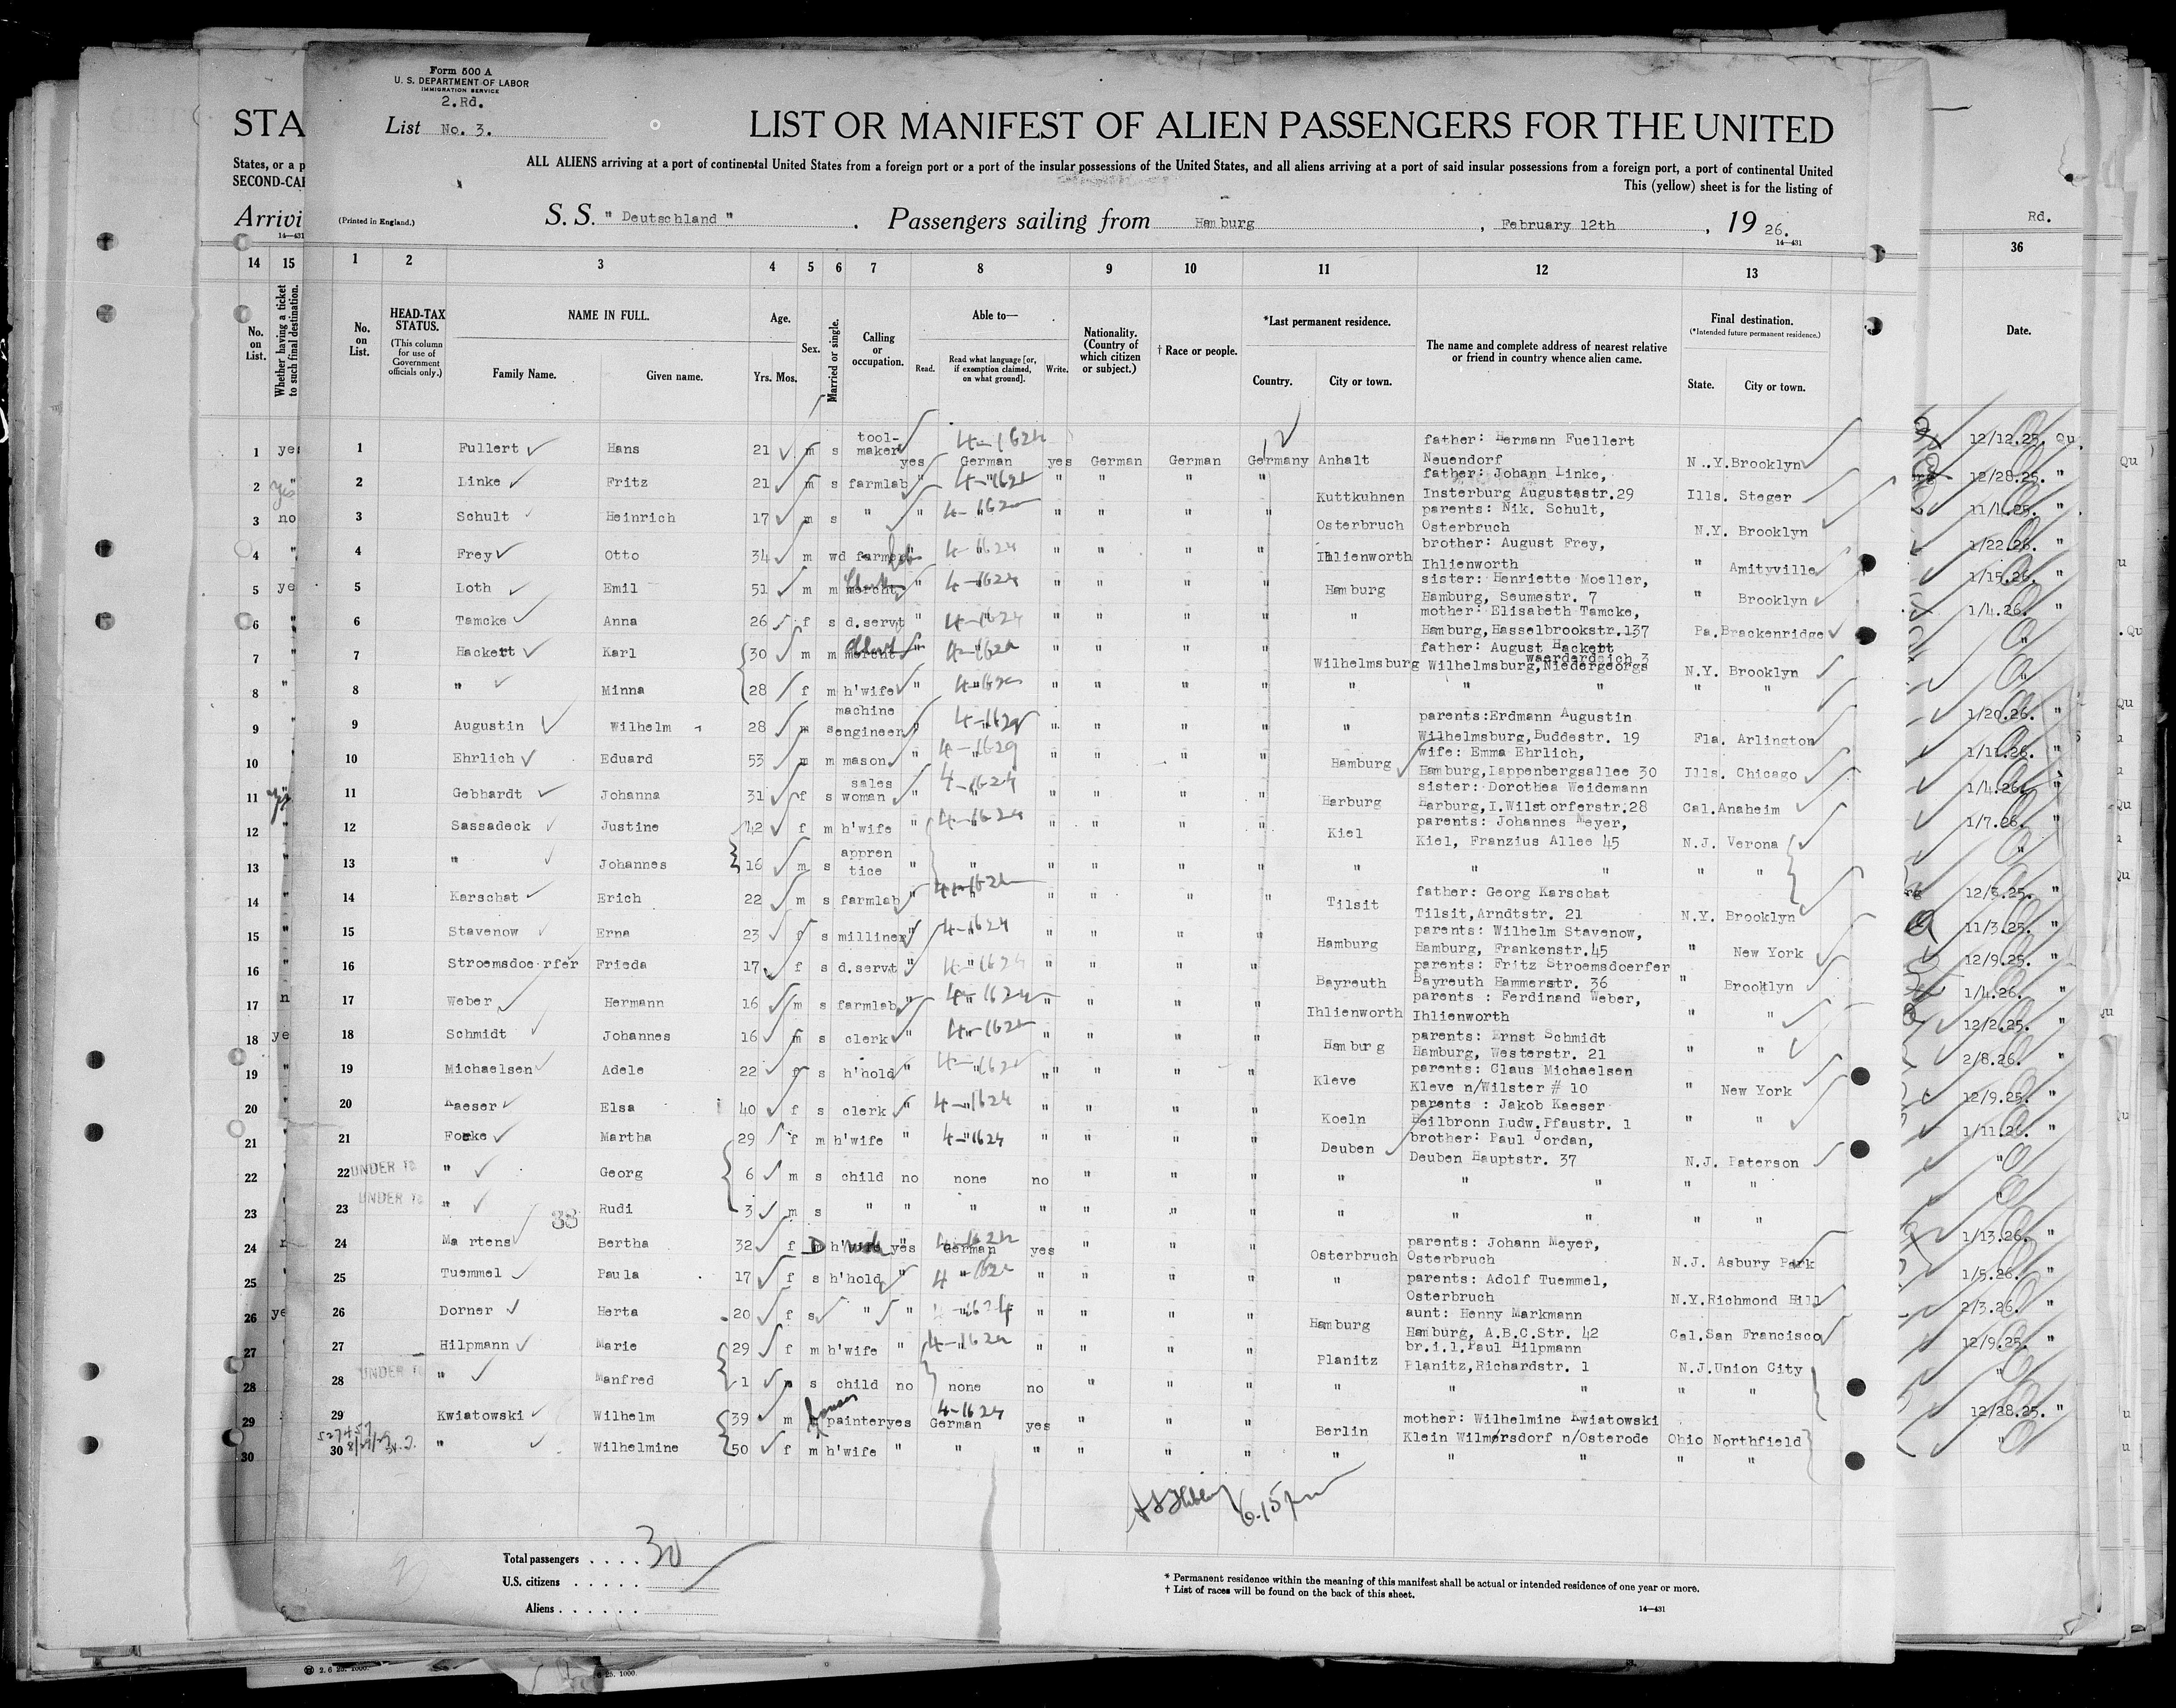 Form 500 A
U. S. DEPARTMENT OF LABOR
IMMIGRATION SERVICE
2.Rd.
List No. 3.
LIST OR MANIFEST OF ALIEN PASSENGERS FOR THE UNITED
ALL ALIENS arriving at a port of continental United States from a foreign port or a port of the insular possessions of the United States, and all aliens arriving at a port of said insular possessions from a foreign port, a port of continental United
This (yellow) sheet is for the listing of
STA
States, or a p
SECOND-CA
Arrivi
14—431
(Printed in England.)
S. S. " Deutschland " . Passengers sailing from Hamburg , February 12th , 19 26.
14—431
Rd.
14 15 1 2 3 4 5 6 7 8 9 10 11 12 13 36
No. on List.
Whether having a ticket to such final destination.
No. on List.
HEAD-TAX STATUS. (This column for use of Government officials only.)
NAME IN FULL.
Family Name. Given name.
Age. Yrs. Mos.
Sex.
Married or single.
Calling or occupation.
Able to—
Read. Read what language [or, if exemption claimed, on what ground]. Write.
Nationality. (Country of which citizen or subject.)
† Race or people.
*Last permanent residence.
Country. City or town.
The name and complete address of nearest relative or friend in country whence alien came.
Final destination. (*Intended future permanent residence.)
State. City or town.
Date.
1 1 Fullert Hans 21 m s tool-maker yes German yes German German Germany Anhalt father: Hermann Fuellert Neuendorf N.Y. Brooklyn 12/12.25. Qu
2 yes 2 Linke Fritz 21 m s farmlab " " " " " " Kuttkuhnen father: Johann Linke, Insterburg Augustastr.29 Ills. Steger 12/28.25. "
3 no 3 Schult Heinrich 17 m s " " " " " " " Osterbruch parents: Nik. Schult, Osterbruch N.Y. Brooklyn 11/4.25. "
4 " 4 Frey Otto 34 m wd farmer " " " " " " Ihlienworth brother: August Frey, Ihlienworth " Amityville 1/22.26. "
5 ye 5 Loth Emil 51 m m mercht " " " " " Hamburg sister: Henriette Moeller, Hamburg, Seumestr. 7 " Brooklyn 1/15.26. "
6 " 6 Tamcke Anna 26 f s d.servt " " " " " " " mother: Elisabeth Tamcke, Hamburg, Hasselbrookstr.137 Pa. Brackenridge 1/4.26. "
7 " 7 Hackert Karl 30 m m mercht " " " " " " Wilhelmsburg father: August Hackert Wilhelmsburg, Niedergeorgswaerderdeich 3 N.Y. Brooklyn "
8 " 8 " Minna 28 f m h'wife " " " " " " " " " " " "
9 " 9 Augustin Wilhelm 28 m s machine engineer " " " " " " " parents: Erdmann Augustin Wilhelmsburg, Buddestr. 19 Fla. Arlington 1/20.26. "
10 " 10 Ehrlich Eduard 53 m m mason " " " " " " Hamburg wife: Emma Ehrlich, Hamburg, Lappenbergsallee 30 Ills. Chicago 1/11.26. "
11 " 11 Gebhardt Johanna 31 f s sales woman " " " " " " Harburg sister: Dorothea Weidemann Harburg, I.Wilstorferstr.28 Cal. Anaheim 1/4.26. "
12 " 12 Sassadeck Justine 42 f m h'wife " " " " " Kiel parents: Johannes Meyer, Kiel, Franzius Allee 45 N.J. Verona 1/7.26. "
13 " 13 " Johannes 16 m s apprentice " " " " " " " " " " " "
14 " 14 Karschat Erich 22 m s farmlab " " " " " " Tilsit father: Georg Karschat Tilsit, Arndtstr. 21 N.Y. Brooklyn 12/3.25. "
15 " 15 Stavenow Erna 23 f s milliner " " " " " " Hamburg parents: Wilhelm Stavenow, Hamburg, Frankenstr.45 " New York 11/3.25. "
16 " 16 Stroemsdoerfer Frieda 17 f s d.servt " " " " " " Bayreuth parents: Fritz Stroemsdoerfer Bayreuth Hammerstr. 36 " Brooklyn 12/9.25. "
17 n 17 Weber Hermann 16 m s farmlab " " " " " " Ihlienworth parents : Ferdinand Weber, Ihlienworth " " 1/4.26. "
18 ye 18 Schmidt Johannes 16 m s clerk " " " " " " Hamburg parents: Ernst Schmidt Hamburg, Westerstr. 21 " " 12/2.25. "
19 " 19 Michaelsen Adele 22 f s h'hold " " " " " " Kleve parents: Claus Michaelsen Kleve n/Wilster # 10 " New York 2/8.26. "
20 " 20 Kaeser Elsa 40 f s clerk " " " " " " Koeln parents : Jakob Kaeser Heilbronn Ludw.Pfaustr. 1 " " 12/9.25. "
21 " 21 Foeke Martha 29 f m h'wife " " " " " " Deuben brother: Paul Jordan, Deuben Hauptstr. 37 N.J. Paterson 1/11.26. "
22 22 UNDER 16 " Georg 6 m s child no none no " " " " " " " " "
23 23 UNDER 16 " Rudi 3 m s " " " " " " " " " " " "
33
24 24 Martens Bertha 32 f D h'wife yes German yes " " " Osterbruch parents: Johann Meyer, Osterbruch N.J. Asbury Park 1/13.26. "
25 " 25 Tuemmel Paula 17 f s h'hold " " " " " " " parents: Adolf Tuemmel, Osterbruch N.Y. Richmond Hill 1/5.26. "
26 ye 26 Dorner Herta 20 f s " " " " " " " Hamburg aunt: Henny Markmann Hamburg, A.B.C.Str. 42 Cal. San Francisco 2/3.26. "
27 27 Hilpmann Marie 29 f m h'wife " " " " " " Planitz br.i.l. Paul Hilpmann Planitz, Richardstr. 1 N.J. Union City 12/9.25. "
28 28 UNDER 16 " Manfred 1 s child no none no " " " " " " " " "
29 29 Kwiatowski Wilhelm 39 m painter yes German yes " " " Berlin mother: Wilhelmine Kwiatowski Klein Wilmersdorf n/Osterode Ohio Northfield 12/28.25. "
30 30 " Wilhelmine 50 f m h'wife " " " " " " " " " " " "
6.15 pm
Total passengers . . . . 30
U.S. citizens . . . . .
Aliens . . . . . .
* Permanent residence within the meaning of this manifest shall be actual or intended residence of one year or more.
† List of races will be found on the back of this sheet.
14—431
2. 6 25. 1000.
6 25. 1000